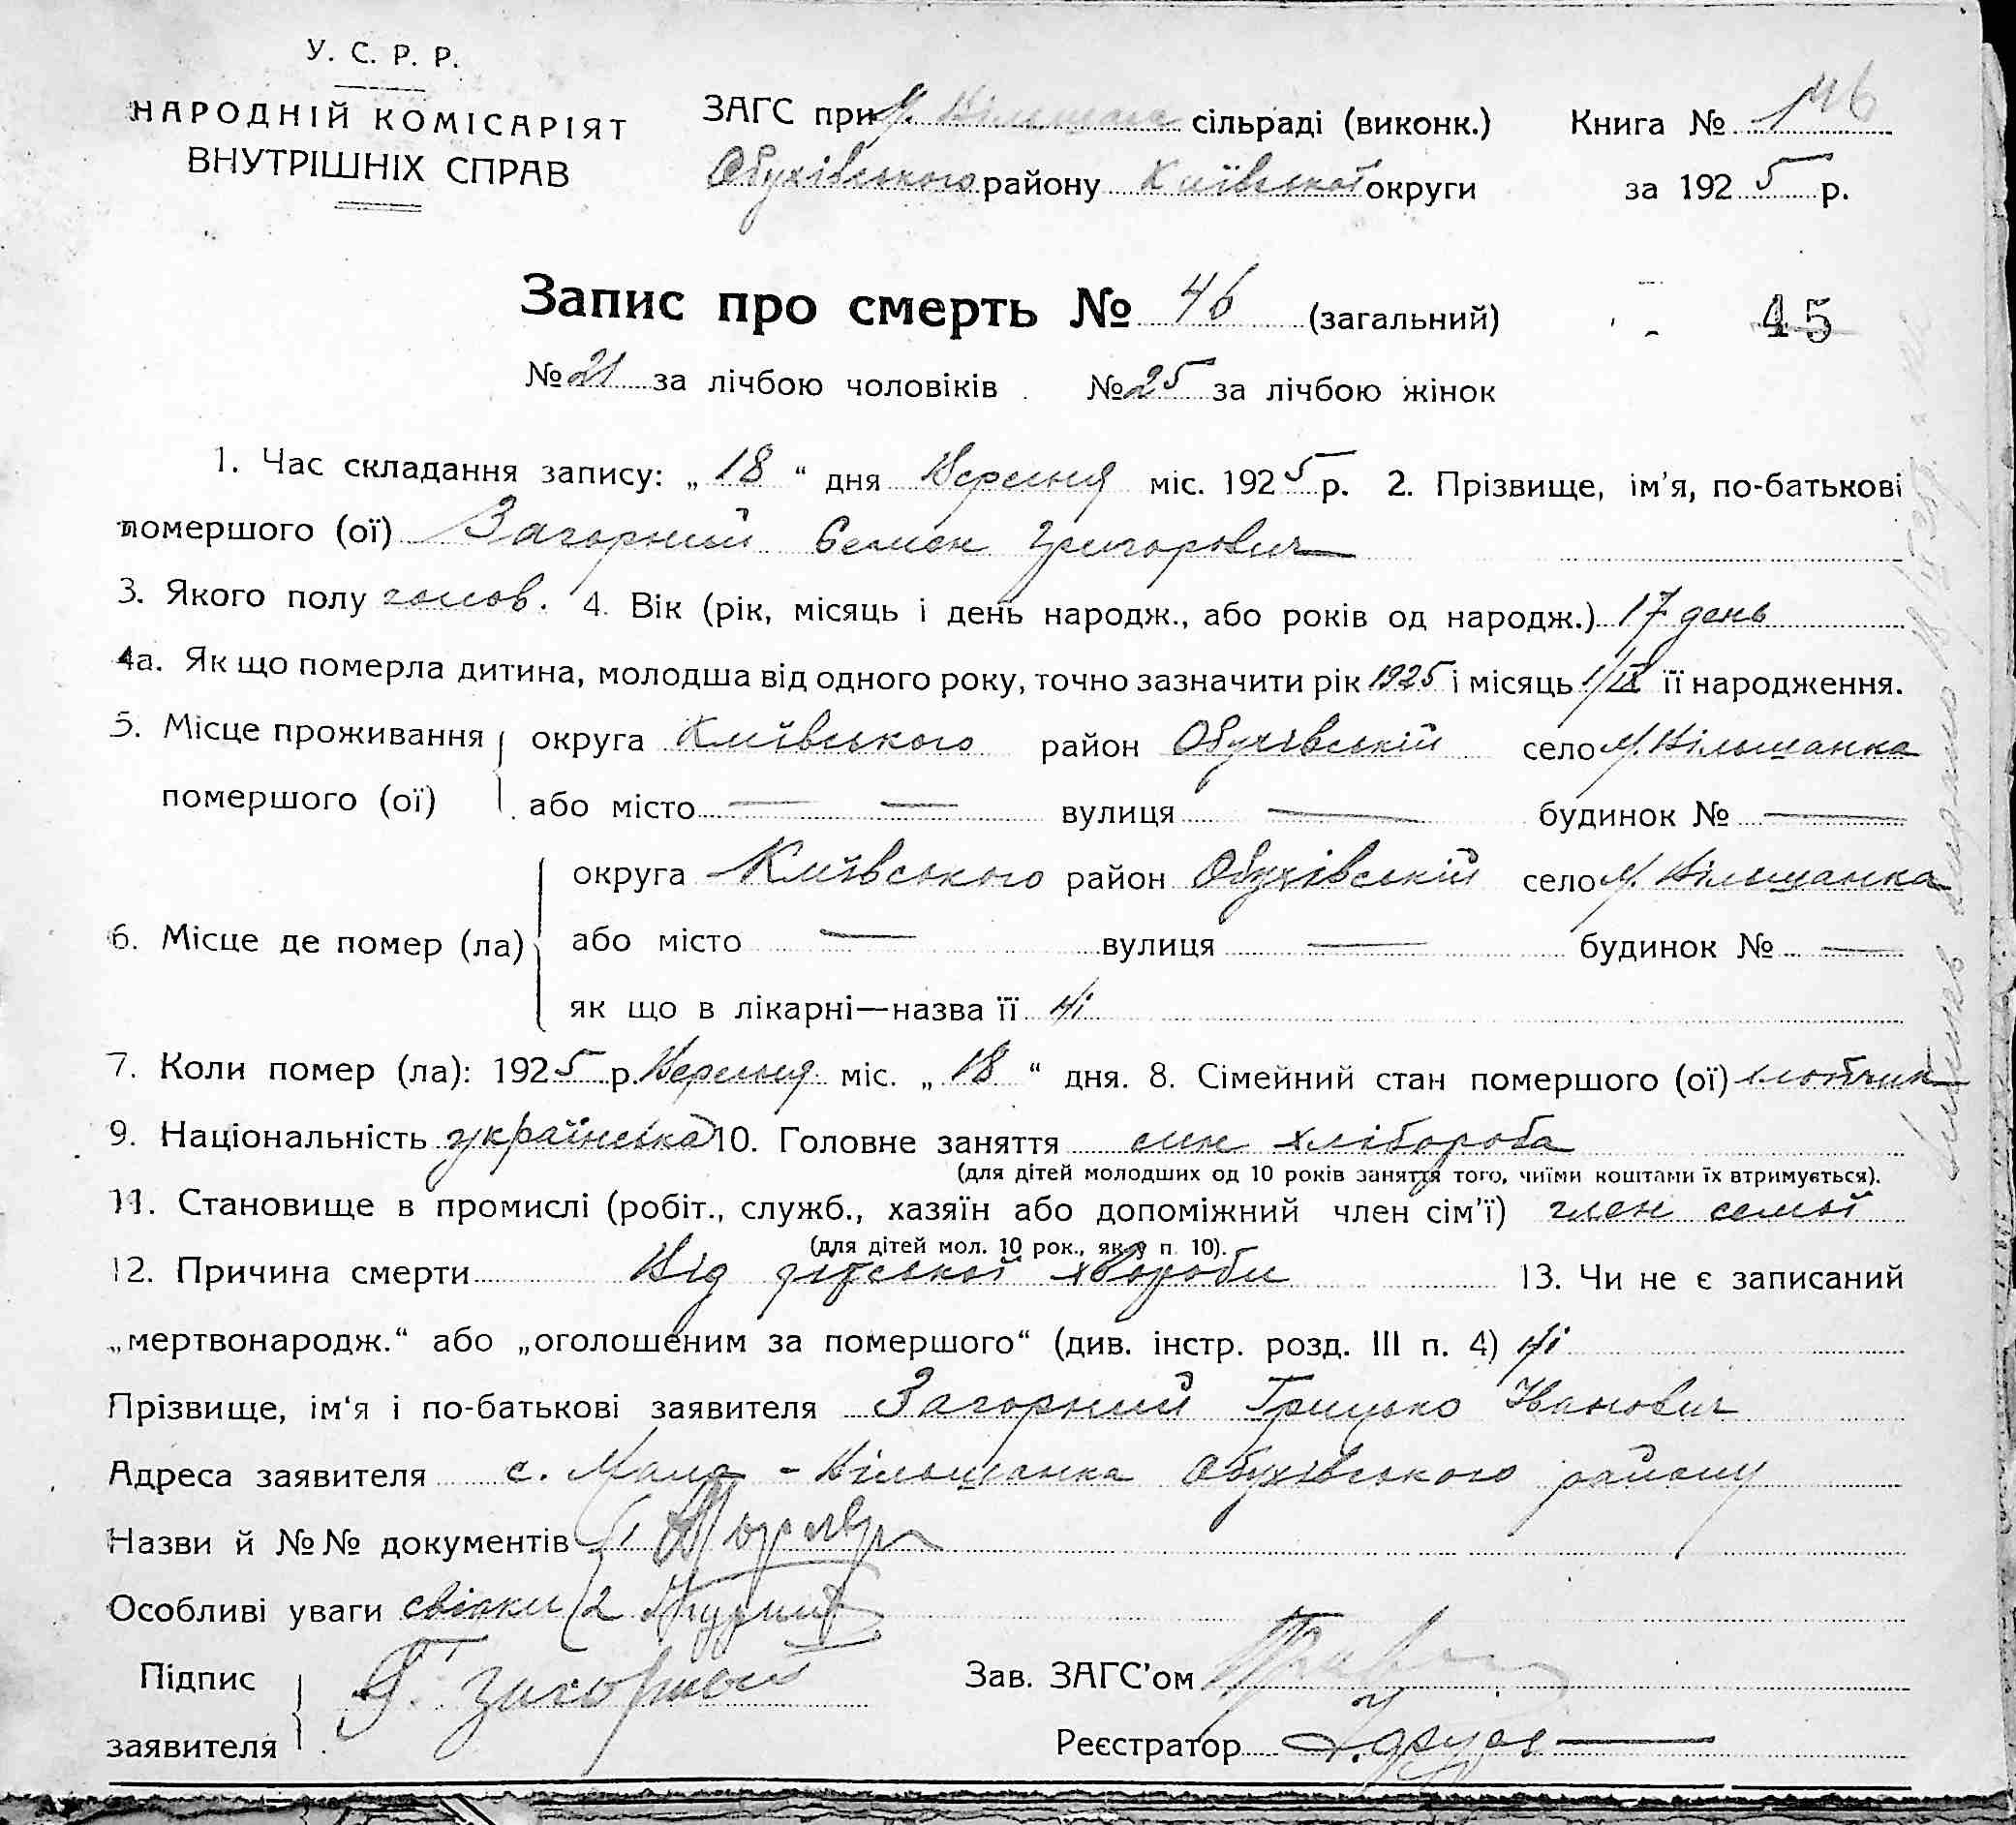 У. С. Р. Р.
НАРОДНІЙ КОМІСАРІЯТ
ВНУТРІШНІХ СПРАВ
ЗАГС при М. Вільшанс сільраді (виконк.) Книга №
Обухівського району Київської округи за 1925 р.
Запис про смерть № 46 (загальний) 45
№ 21 за лічбою чоловіків № 25 за лічбою жінок
1. Час складання запису: „ 18 “ дня Вересня міс. 1925 р. 2. Прізвище, ім'я, по-батькові
помершого (ої) Загорний Семен Григорович
3. Якого полу чолов. 4. Вік (рік, місяць і день народж., або років од народж.) 17 день
4а. Як що померла дитина, молодша від одного року, точно зазначити рік 1925 і місяць 1/IX її народження.
5. Місце проживання помершого (ої) округа Київського район Обухівській село М. Вільшанка
або місто — — вулиця — будинок № —
6. Місце де помер (ла) округа Київського район Обухівській село М. Вільшанка
або місто — вулиця — будинок № —
як що в лікарні—назва її Ні
7. Коли помер (ла): 1925 р. Вересня міс. „ 18 “ дня. 8. Сімейний стан помершого (ої) хлопчик
9. Національність українська 10. Головне заняття син хлібороба
(для дітей молодших од 10 років заняття того, чиїми коштами їх втримується).
11. Становище в промислі (робіт., служб., хазяїн або допоміжний член сім'ї) член семьї
(для дітей мол. 10 рок., як у п. 10).
12. Причина смерти Від дітської хвороби 13. Чи не є записаний
„мертвонародж.“ або „оголошеним за помершого“ (див. інстр. розд. III п. 4) Ні
Прізвище, ім'я і по-батькові заявителя Загорний Грицько Іванович
Адреса заявителя с. Мала - Вільшанка Обухівського району
Назви й №№ документів 1
Особливі уваги свідки 2
Підпис заявителя Г. Загорний
Зав. ЗАГС'ом
Реєстратор